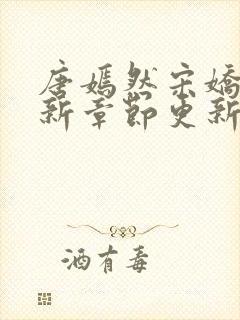 唐嫣然宋嬌
新章節更新
酒有毒